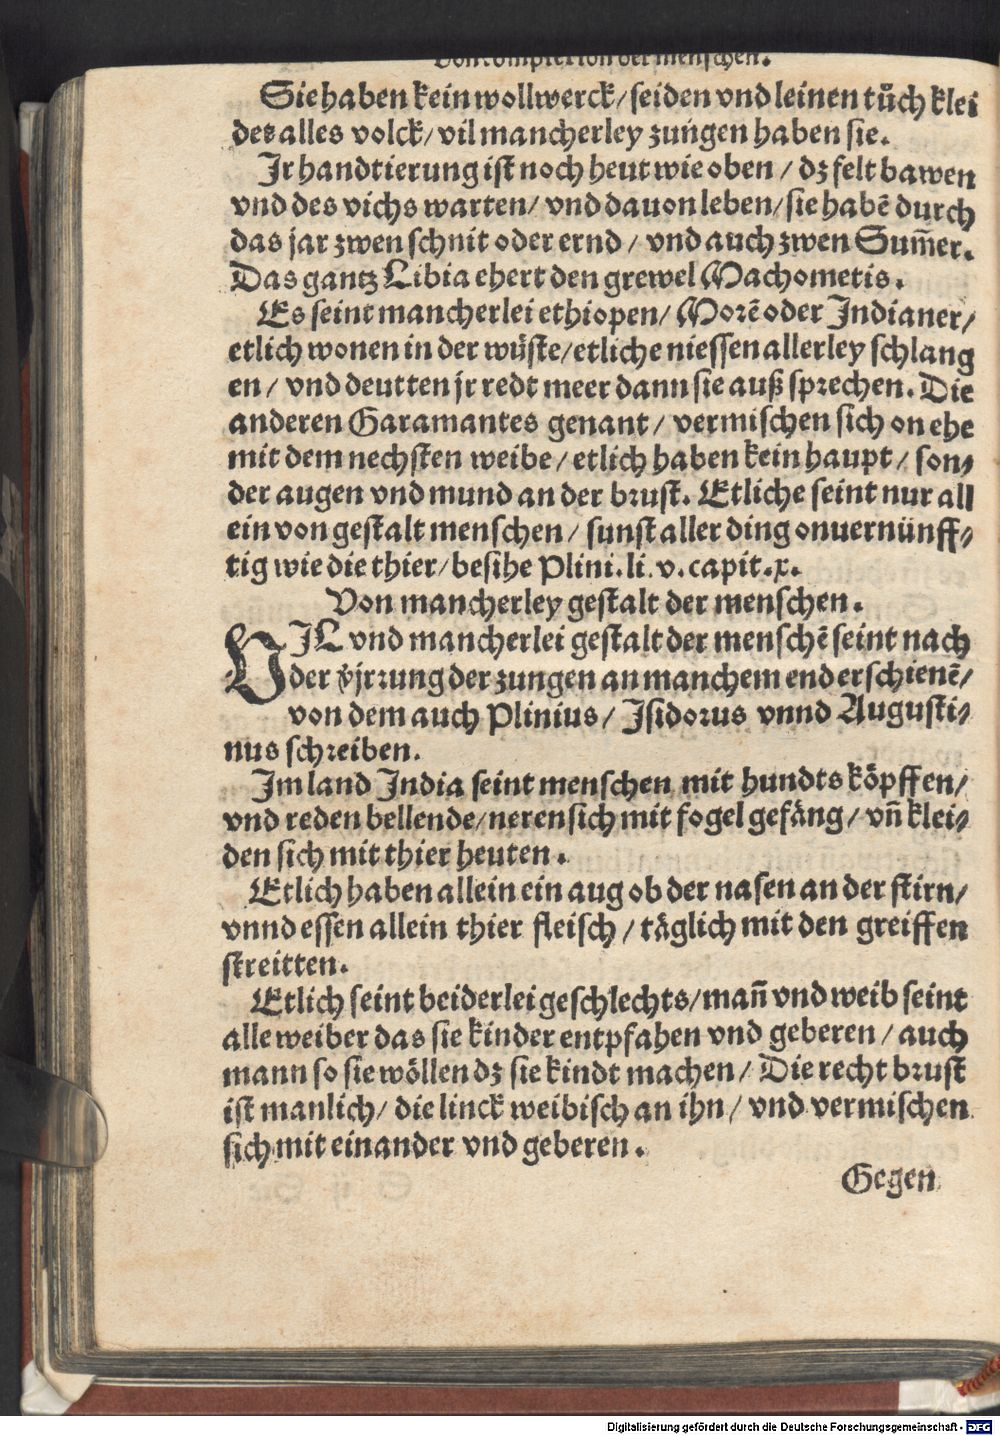 Von complexion der menschen.
Sie haben kein wollwerck/ seiden vnd leinen tůch klei
det alles volck/ vil mancherley zungen haben sie.
Jr handtierung ist noch heut wie oben / dz felt bawen
vnd des vichs warten/ vnd dauon leben/ sie habē durch
das jar zwen schnit oder ernd / vnd auch zwen Sum̄er.
Das gantz Libia ehert den grewel Machometis.
Es seint mancherlei ethiopen/ Morē oder Indianer/
etlich wonen in der wüste/ etliche niessen allerley schlang
en/ vnd deutten jr redt meer dann sie auß sprechen. Die
anderen Garamantes genant/ vermischen sich on ehe
mit dem nechsten weibe/ etlich haben kein haupt/ son⸗
der augen vnd mund an der brust. Etliche seint nur all
ein von gestalt menschen/ sunst aller ding onuernünff⸗
tig wie die thier/ besihe Plini. li. v. capit. x.
Von mancherley gestalt der menschen.
VJL vnd mancherlei gestalt der menschē seint nach
der jrrung der zungen an manchem end erschienē/
von dem auch Plinius/ Isidorus vnnd Augusti⸗
nus schreiben.
Im land India seint menschen mit hundts köpffen/
vnd reden bellende/ neren sich mit fogel gefäng/ vn̄ klei⸗
den sich mit thier heuten.
Etlich haben allein ein aug ob der nasen an der stirn/
vnnd essen allein thier fleisch/ täglich mit den greiffen
streitten.
Etlich seint beiderlei geschlechts/ man̄ vnd weib seint
alle weiber das sie kinder entpfahen vnd geberen/ auch
mann so sie wöllen dz sie kindt machen/ Die recht brust
ist manlich/ die linck weibisch an ihn/ vnd vermischen
sich mit einander vnd geberen.
Gegen
Digitalisierung gefördert durch die Deutsche Forschungsgemeinschaft - DFG